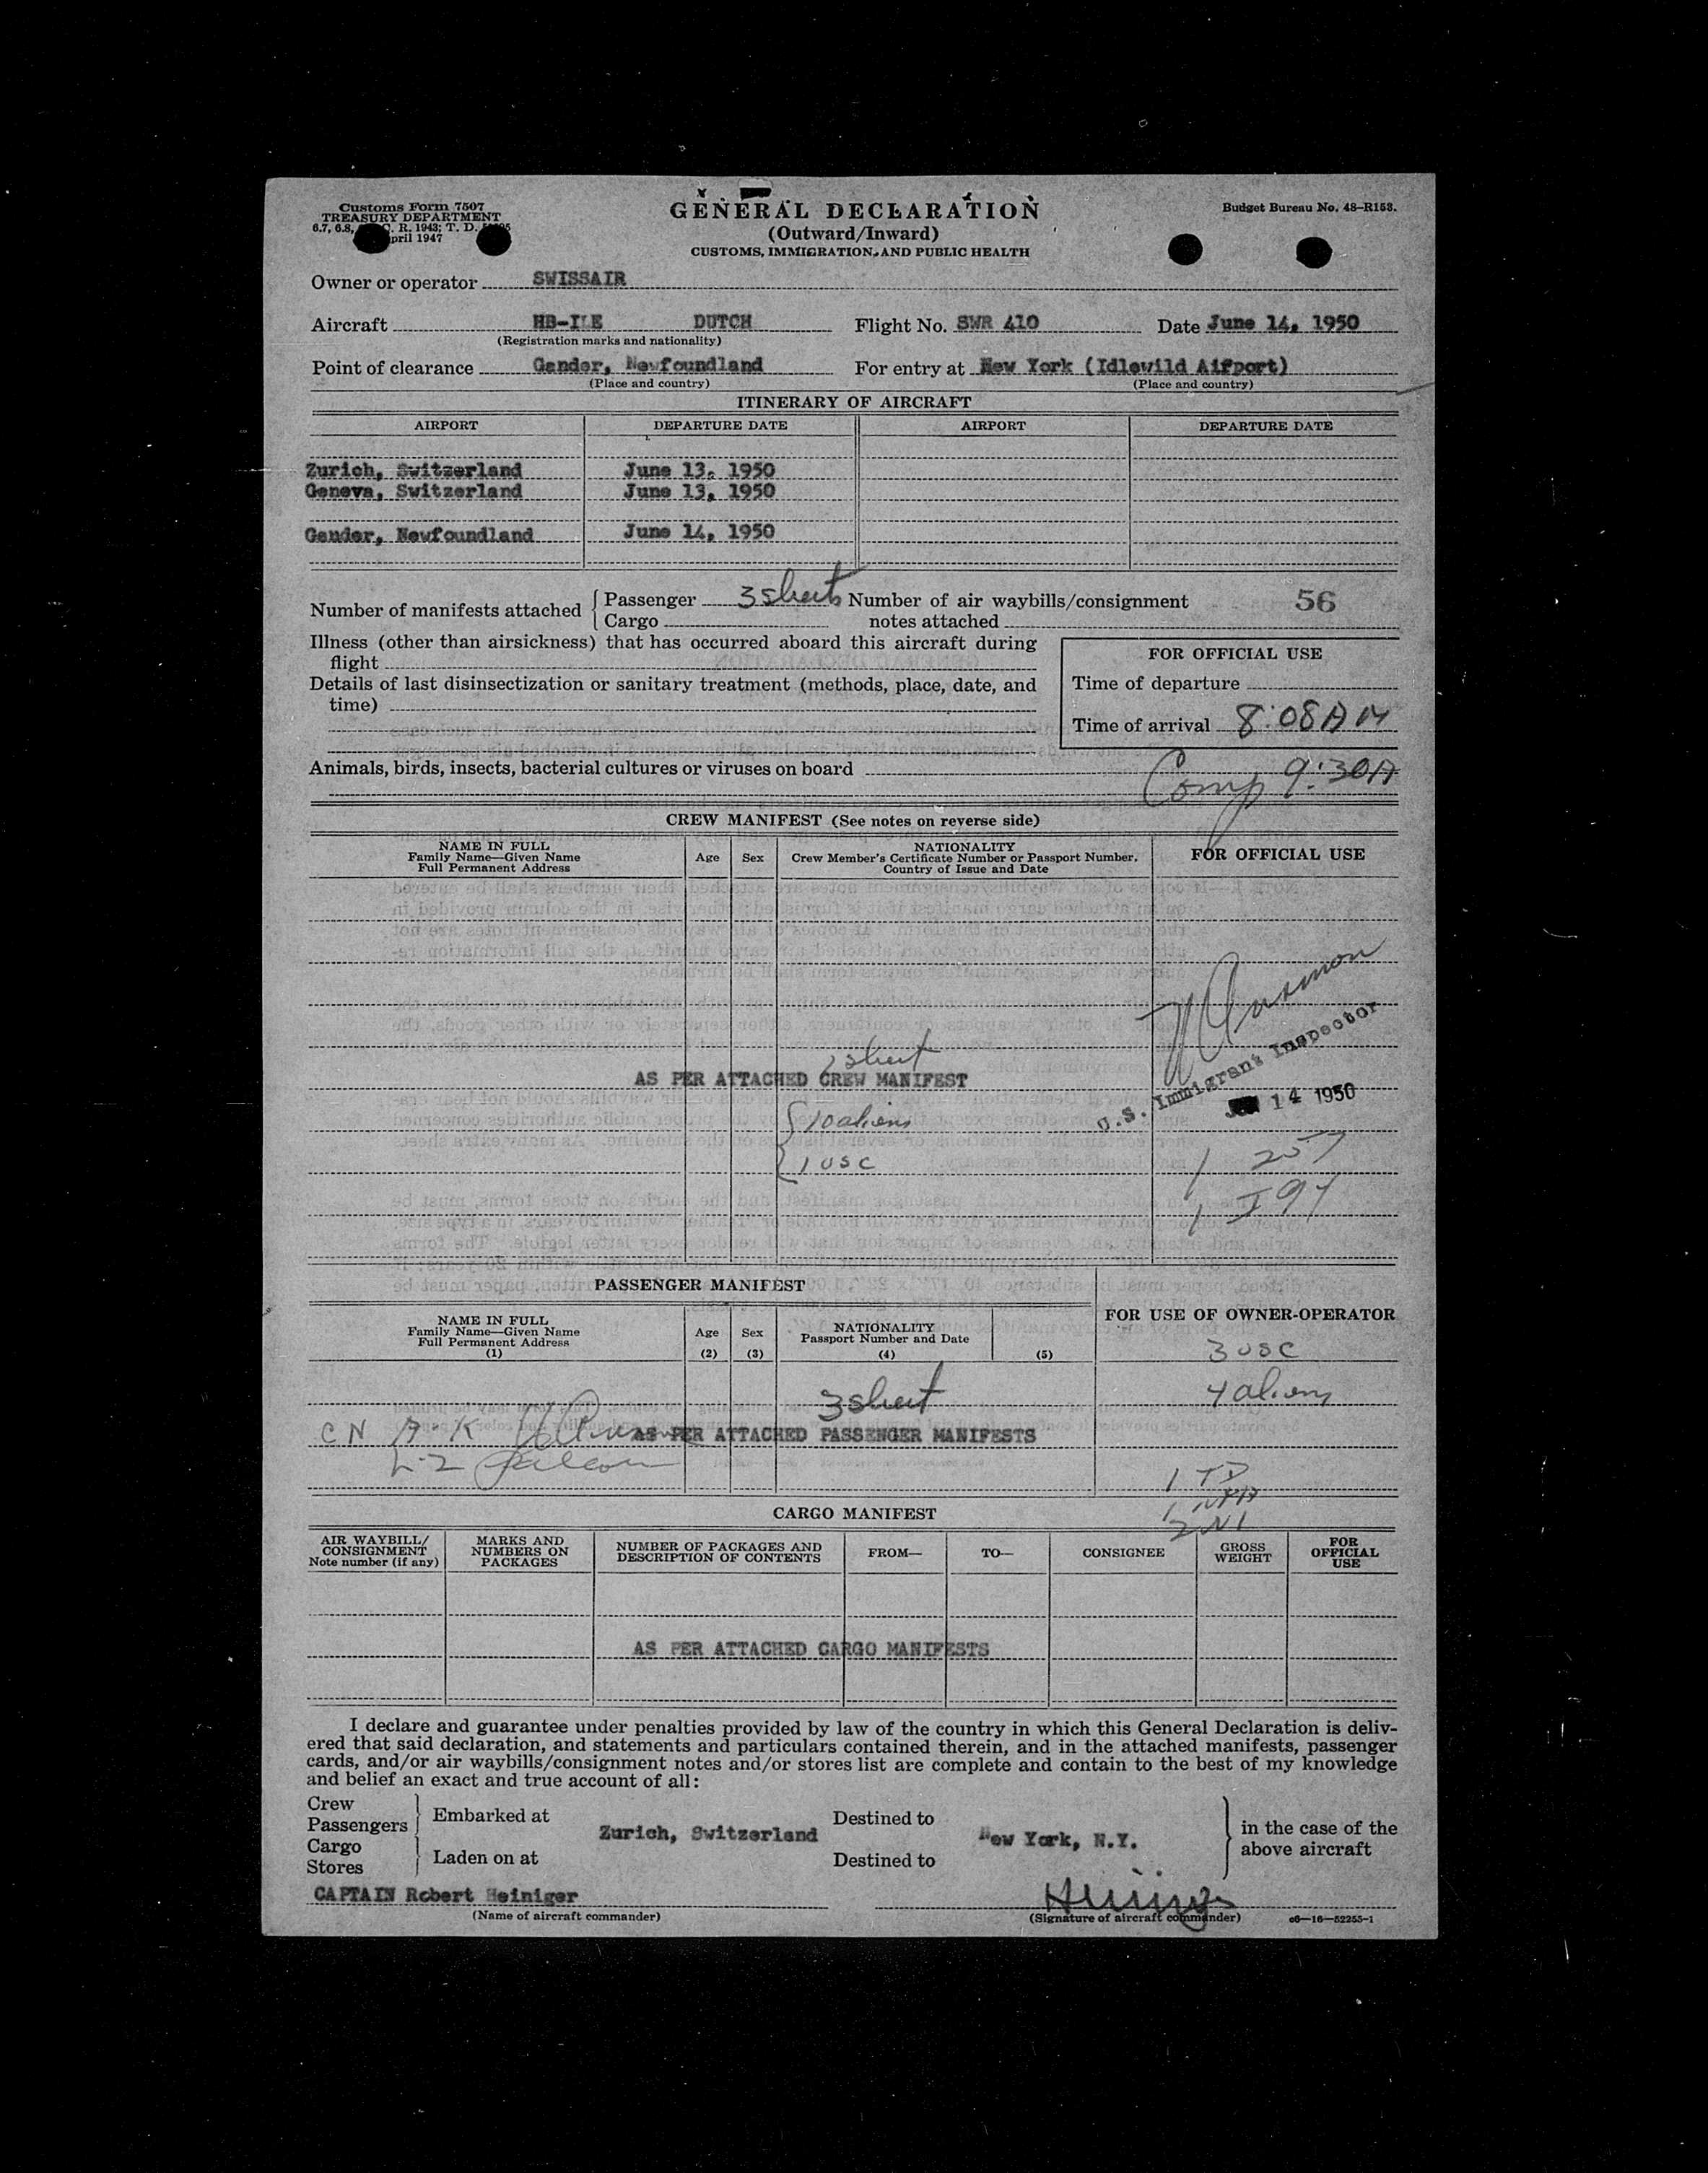 Customs Form 7507
TREASURY DEPARTMENT
6.7, 6.8, C. R. 1943; T. D.
April 1947
GENERAL DECLARATION
(Outward/Inward)
CUSTOMS, IMMIGRATION, AND PUBLIC HEALTH
Budget Bureau No. 48-R153.
Owner or operator SWISSAIR
Aircraft HB-ILE DUTCH Flight No. SWR 410 Date June 14, 1950
(Registration marks and nationality)
Point of clearance Gander, Newfoundland For entry at New York (Idlewild Airport)
(Place and country) (Place and country)
ITINERARY OF AIRCRAFT
AIRPORT DEPARTURE DATE AIRPORT DEPARTURE DATE
Zurich, Switzerland June 13, 1950
Geneva, Switzerland June 13, 1950
Gander, Newfoundland June 14, 1950
Number of manifests attached { Passenger 3 sheets Number of air waybills/consignment 56
Cargo notes attached
Illness (other than airsickness) that has occurred aboard this aircraft during
flight
FOR OFFICIAL USE
Details of last disinsectization or sanitary treatment (methods, place, date, and
time)
Time of departure
Time of arrival 8:08 AM
Animals, birds, insects, bacterial cultures or viruses on board
Comp 9:30A
CREW MANIFEST (See notes on reverse side)
NAME IN FULL
Family Name—Given Name
Full Permanent Address
Age Sex
NATIONALITY
Crew Member's Certificate Number or Passport Number,
Country of Issue and Date
FOR OFFICIAL USE
sheet
AS PER ATTACHED CREW MANIFEST
U.S. Immigrant Inspector
JUN 14 1950
10 aliens
1 USC
1 257
1 I 94
PASSENGER MANIFEST
FOR USE OF OWNER-OPERATOR
NAME IN FULL
Family Name—Given Name
Full Permanent Address
(1)
Age
(2)
Sex
(3)
NATIONALITY
Passport Number and Date
(4)
(5)
3 USC
4 aliens
3 sheet
C N A K
AS PER ATTACHED PASSENGER MANIFESTS
L-2
1 TD
2 NI
CARGO MANIFEST
AIR WAYBILL/
CONSIGNMENT
Note number (if any)
MARKS AND
NUMBERS ON
PACKAGES
NUMBER OF PACKAGES AND
DESCRIPTION OF CONTENTS
FROM—
TO—
CONSIGNEE
GROSS
WEIGHT
FOR
OFFICIAL
USE
AS PER ATTACHED CARGO MANIFESTS
I declare and guarantee under penalties provided by law of the country in which this General Declaration is deliv-
ered that said declaration, and statements and particulars contained therein, and in the attached manifests, passenger
cards, and/or air waybills/consignment notes and/or stores list are complete and contain to the best of my knowledge
and belief an exact and true account of all:
Crew
Passengers
Cargo
Stores
Embarked at
Laden on at
Zurich, Switzerland
Destined to
Destined to
New York, N.Y.
in the case of the
above aircraft
CAPTAIN Robert Heiniger
(Name of aircraft commander)
(Signature of aircraft commander)
c6—16—52255-1